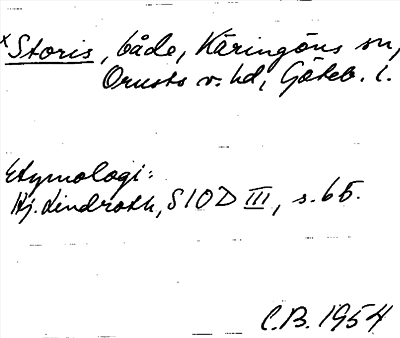 x Storis, både, Käringöns sn,
Orusts v. hd, Göteb. l.
Etymologi:
Hj. Lindroth, SIOD III, s. 65.
C.B. 1954